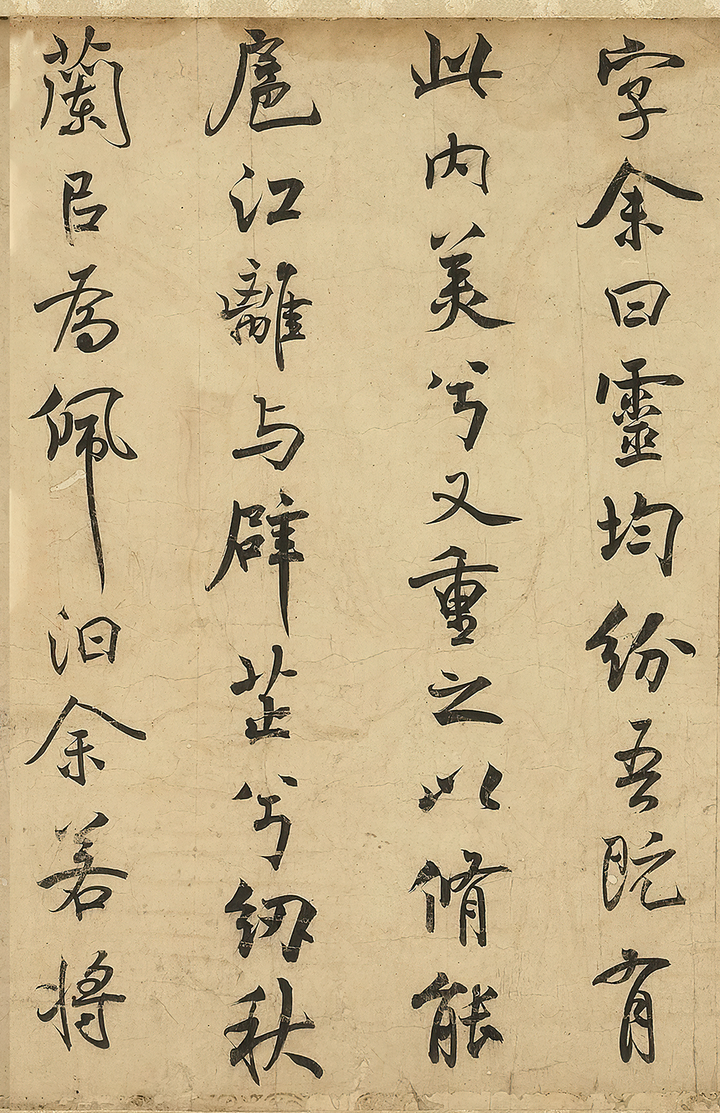 字余曰靈均紛吾既有
此內美兮又重之以脩能
扈江離与辟芷兮紉秋
蘭㠯為佩汩余若將